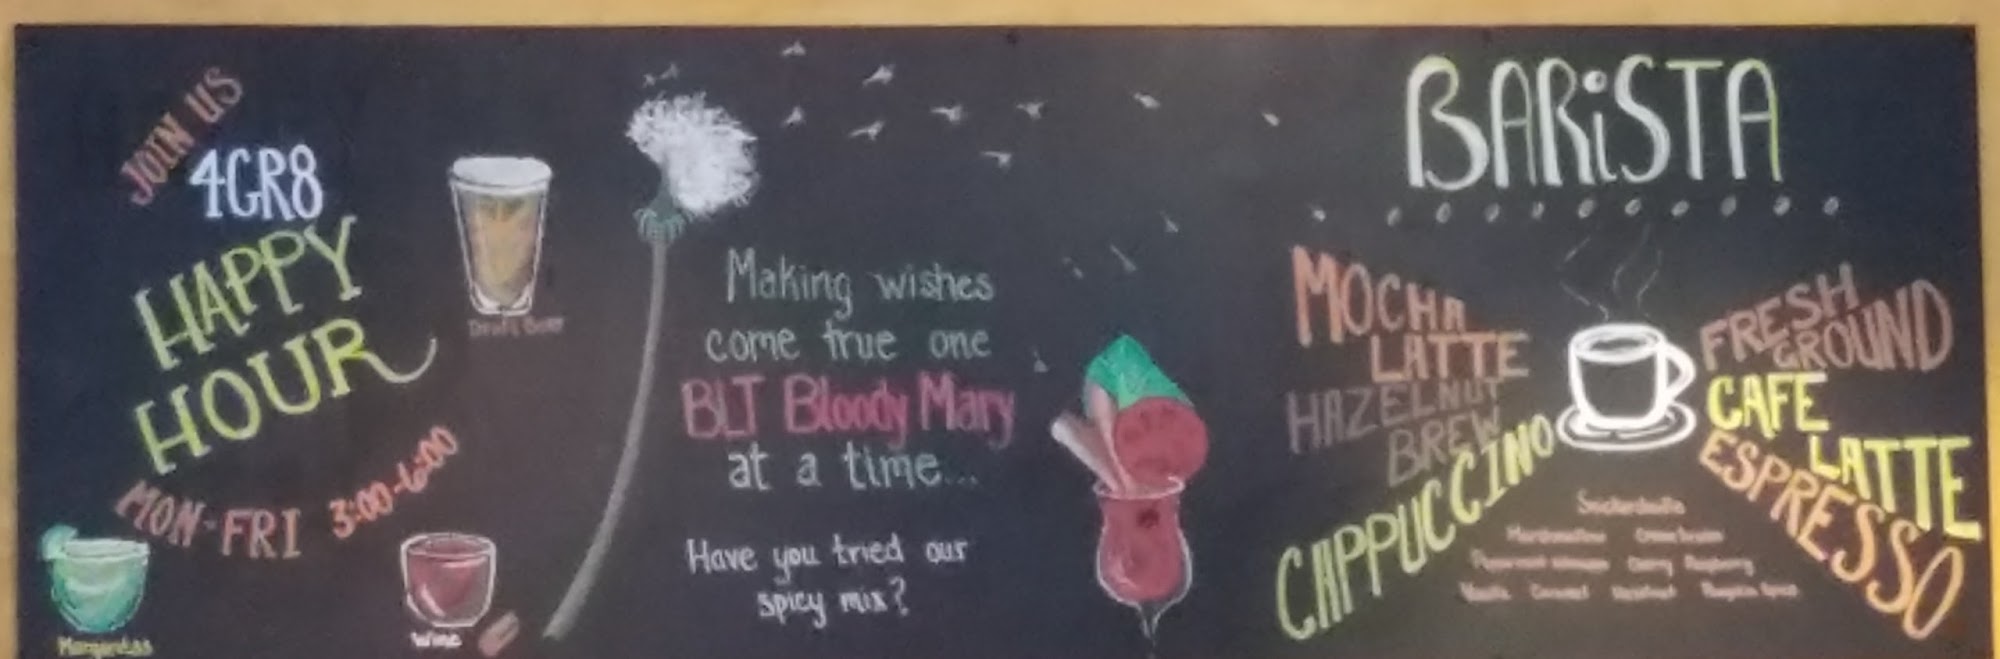 JOIN US
4GR8
HAPPY
HOUR
MON-FRI 3:00-6:00
Draft Beer
Margaritas
Wine
Making wishes
come true one
BLT Bloody Mary
at a time...
Have you tried our
spicy mix?
BARiSTA
MOCHA
LATTE
HAZELNUT
BREW
CAPPUCCINO
FRESH
GROUND
CAFE
LATTE
ESPRESSO
Snickerdoodle
Marshmallow
Peppermint Cherry Raspberry
Vanilla Caramel Hazelnut Pumpkin Spice